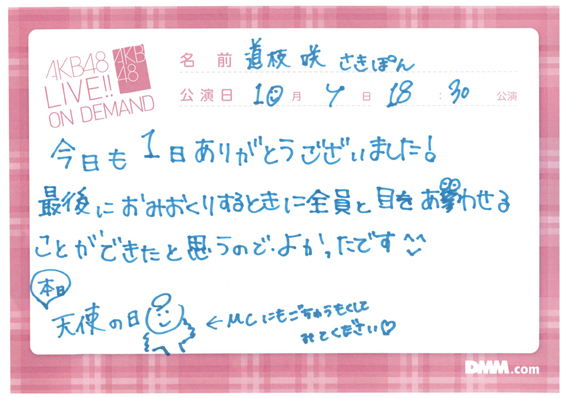 AKB48
LIVE!!
ON DEMAND
AKB
48
名前 道枝 咲 さきぽん
公演日 10月 7日 18:30 公演
今日も1日ありがとうございました!
最後におみおくりするときに全員と目をあわせる
ことができたと思うので、よかったです^^
本日
天使の日 ←MCにもごちゅうもくして
みてください♡
DMM.com